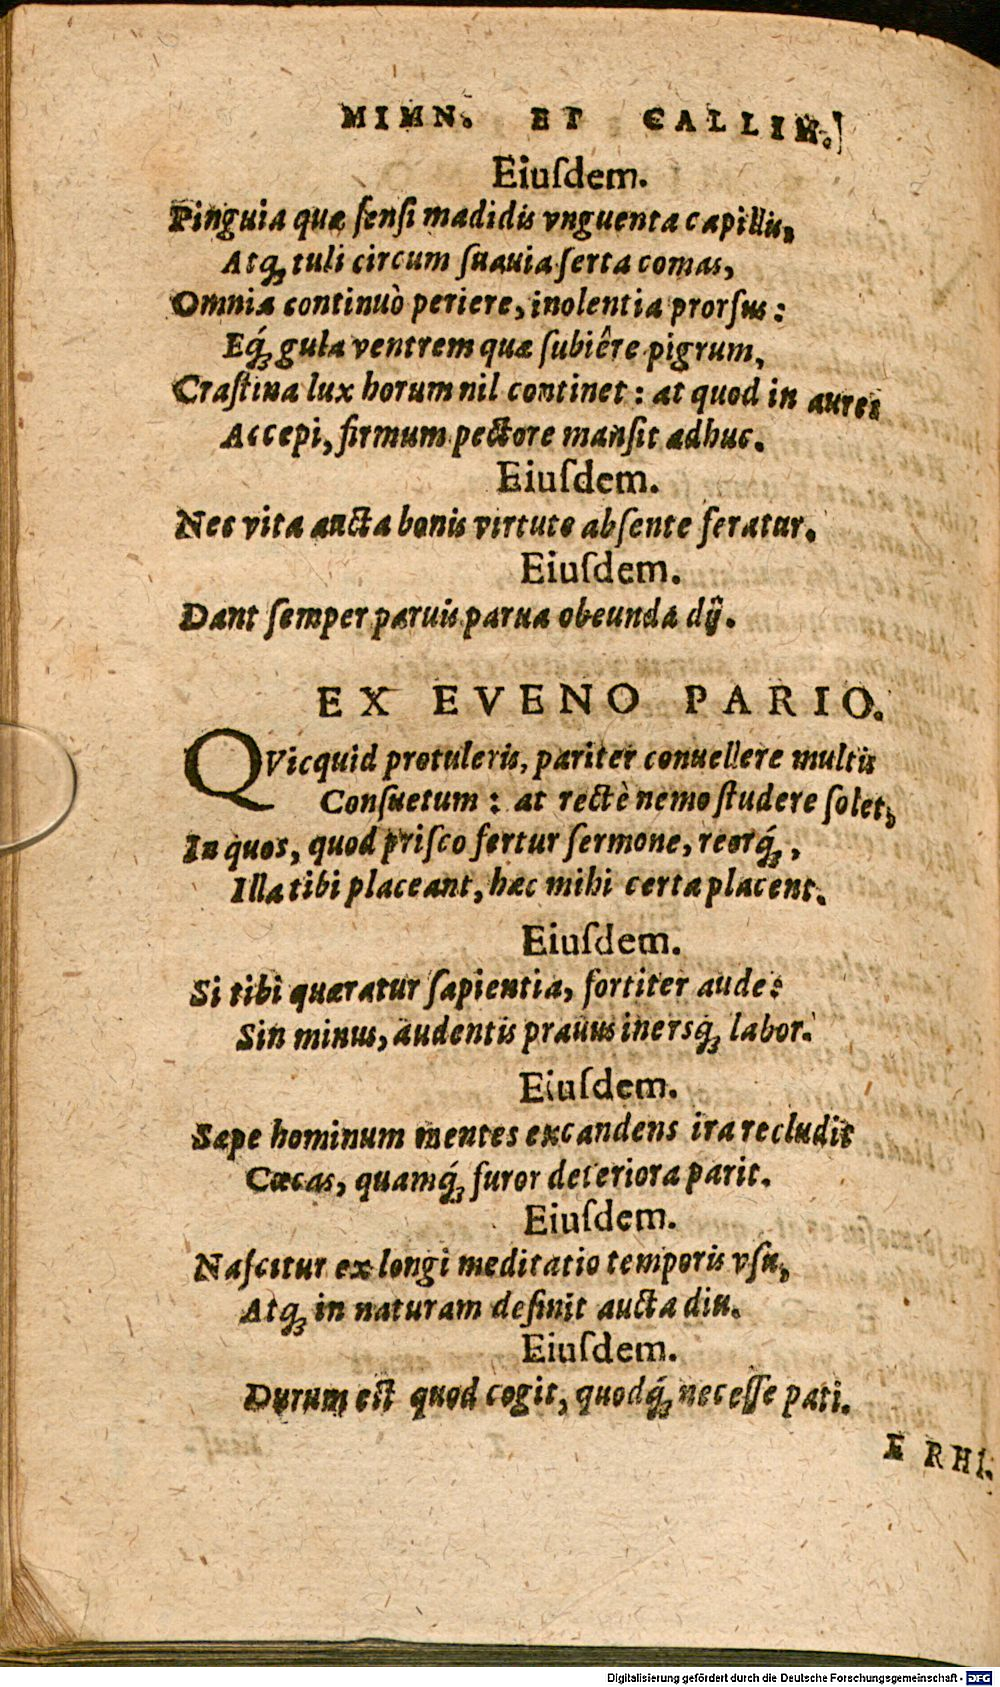 MIMN. ET CALLIM.
Eiuſdem.
Pinguia quæ ſenſi madidis vnguenta capillis,
Atq́; tuli circum ſuauia ſerta comas,
Omnia continuò periere, inolentia prorſus:
Eq́; gula ventrem quæ ſubiêre pigrum,
Craſtina lux horum nil continet: at quod in aures
Accepi, firmum pectore manſit adhuc.
Eiuſdem.
Nec vita aucta bonis virtute abſente feratur.
Eiuſdem.
Dant ſemper paruis parua obeunda dij.
EX EVENO PARIO.
QVicquid protuleris, pariter conuellere multis
Conſuetum: at rectè nemo ſtudere ſolet,
In quos, quod priſco fertur ſermone, reorq́;,
Illa tibi placeant, hæc mihi certa placent.
Eiuſdem.
Si tibi quæratur ſapientia, fortiter aude:
Sin minus, audentis prauus inersq́; labor.
Eiuſdem.
Sæpe hominum mentes excandens ira recludit
Cæcas, quamq́; furor deteriora parit.
Eiuſdem.
Naſcitur ex longi meditatio temporis vſu,
Atq́; in naturam definit aucta diu.
Eiuſdem.
Durum eſt quod cogit, quodq́; neceſſe pati.
E RHI.
Digitalisierung gefördert durch die Deutsche Forschungsgemeinschaft - DFG